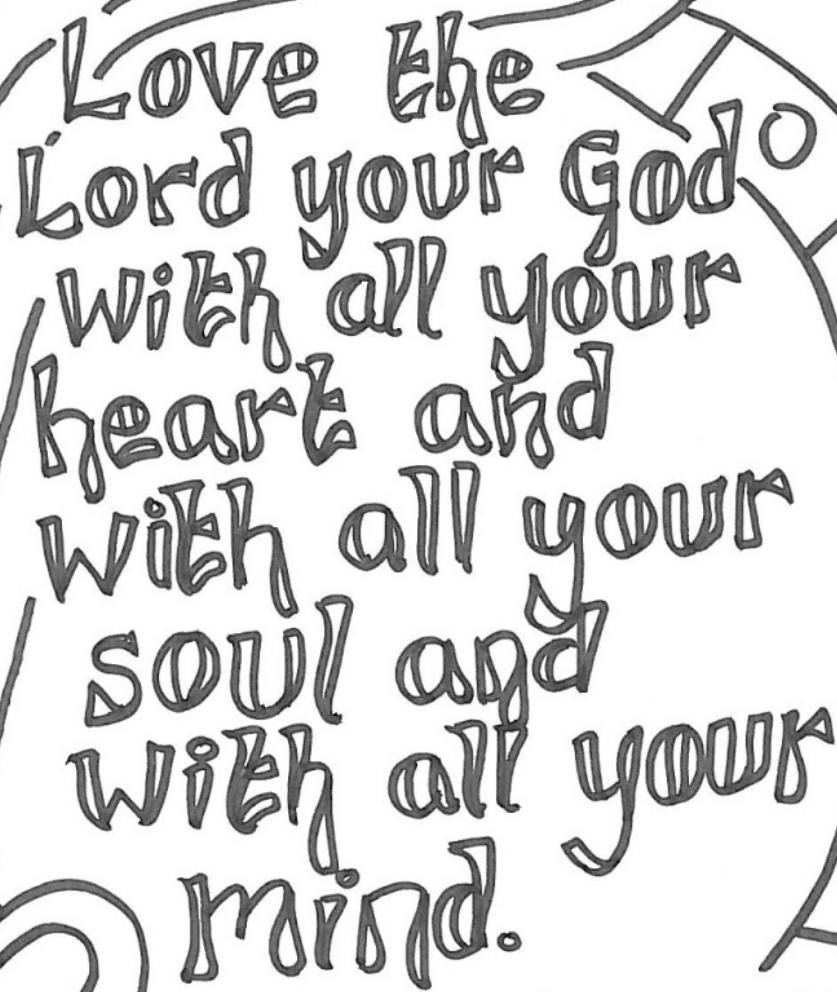 Love the
Lord your God
with all your
heart and
with all your
soul and
with all your
mind.